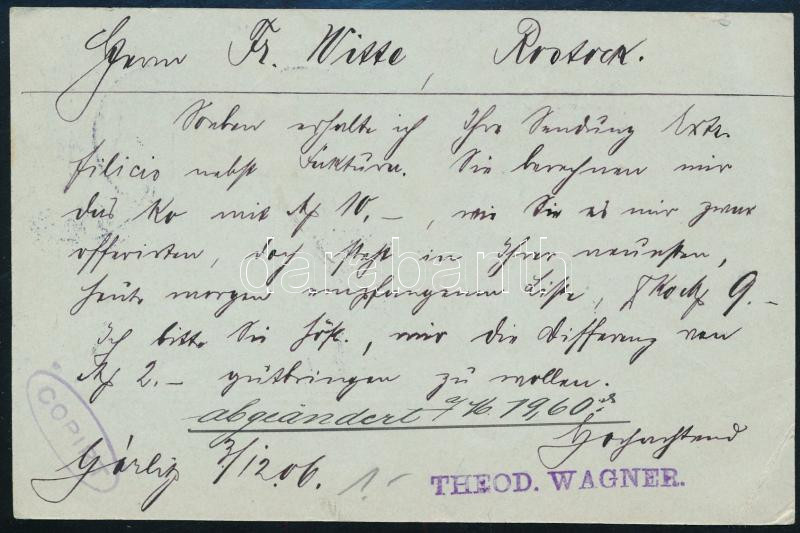 Herrn Fr. Witte, Rostock.
Soeben erhalte ich Ihre Sendung Extr.
filicis nebst Faktura. Sie berechnen mir
das Ko mit M 10.–, wie Sie es mir zwar
offerirten, doch steht in Ihrer neuesten,
heute morgen empfangenen Liste, Ko M 9.–
Ich bitte Sie höfl., mir die Differenz von
M 2.– gutbringen zu wollen.
abgeändert a/ M. 19,60
Hochachtend
Görlitz 3/12.06. 1.–
THEOD. WAGNER.
COPIRT
darabanth